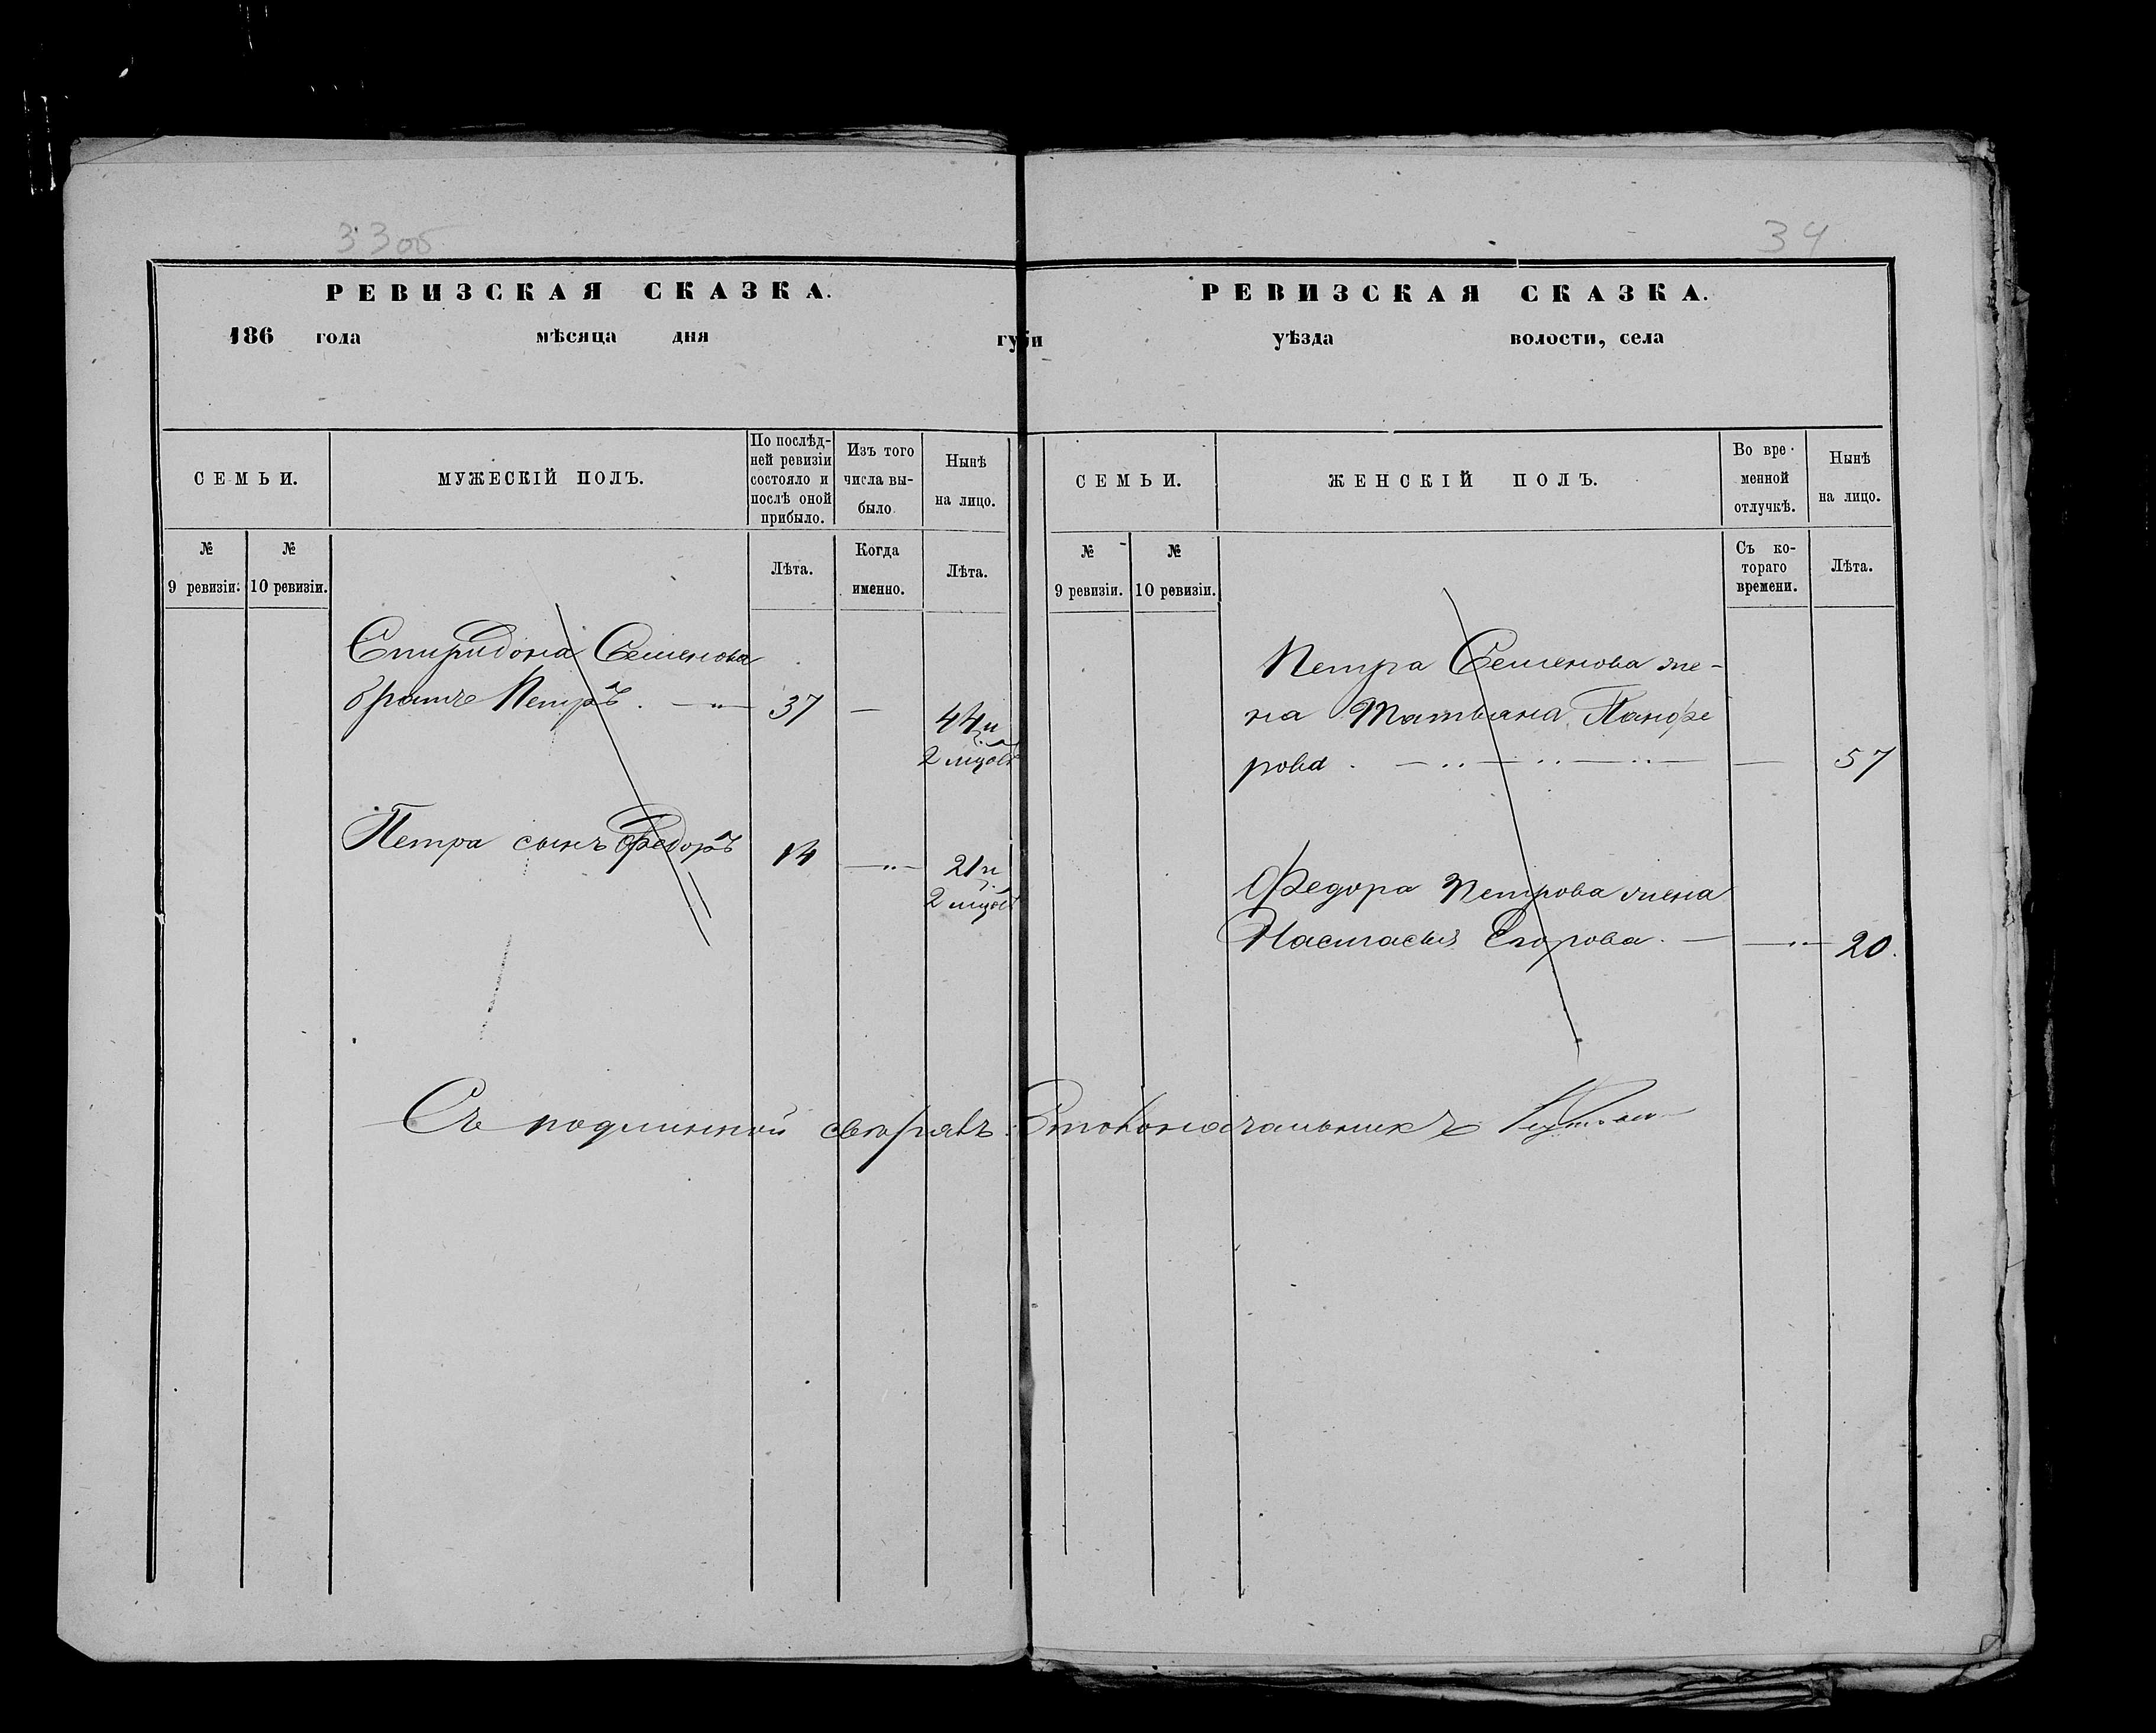 33об
РЕВИЗСКАЯ СКАЗКА.
186 года мѣсяца дня губи
СЕМЬИ.
МУЖЕСКІЙ ПОЛЪ.
По послѣд-
ней ревизіи
состояло и
послѣ оной
прибыло.
Изъ того
числа вы-
было.
Нынѣ
на лицо.
№
9 ревизіи.
№
10 ревизіи.
Лѣта.
Когда
именно.
Лѣта.
Спиридона Семенова
братъ Петръ. — „ — 37 — 44 и
2 мцов
Петра сынъ Федоръ 14 — „ — 21 и
2 мцов
34
РЕВИЗСКАЯ СКАЗКА.
уѣзда волости, села
СЕМЬИ.
ЖЕНСКІЙ ПОЛЪ.
Во вре-
менной
отлучкѣ.
Нынѣ
на лицо.
№
9 ревизіи.
№
10 ревизіи.
Съ ко-
тораго
времени.
Лѣта.
Петра Семенова же-
на Татьяна Панфе
рова. — „ — „ — „ — — 57
Федора Петрова жена
Настасья Егорова. — — „ — 20.
Съ подлинной сверялъ: Столоначальникъ